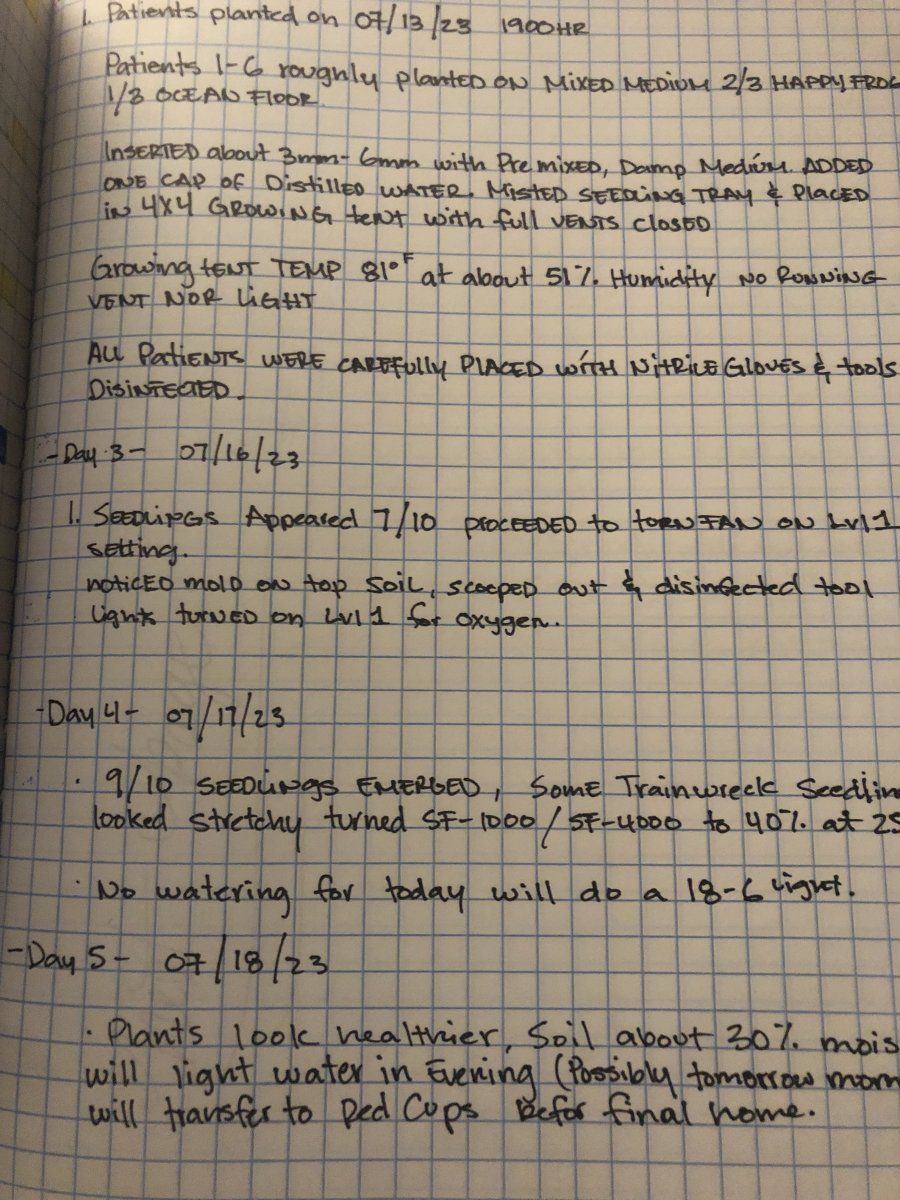 1. Patients planted on 07/13/23 1900HR
Patients 1-6 roughly planted on Mixed Medium 2/3 Happy Frog
1/3 Ocean Floor
Inserted about 3mm-6mm with Premixed, Damp Medium. Added
one cap of Distilled water. Misted seedling tray & Placed
in 4x4 Growing tent with full vents closed
Growing tent temp 81°F at about 51% Humidity no Running
vent nor light
All Patients were carefully placed with Nitrile Gloves & tools
Disinfected.
-Day 3- 07/16/23
1. Seedlings Appeared 7/10 proceeded to turn fan on Lvl 1
setting.
noticed mold on top soil, scooped out & disinfected tool
lights turned on Lvl 1 for oxygen.
-Day 4- 07/17/23
· 9/10 seedlings emerged, some Trainwreck Seedlin
looked stretchy turned SF-1000/SF-4000 to 40% at 25
· No watering for today will do a 18-6 light.
-Day 5- 07/18/23
· Plants look healthier, Soil about 30% mois
will light water in Evening (Possibly tomorrow morn
will transfer to Red Cups Befor final home.